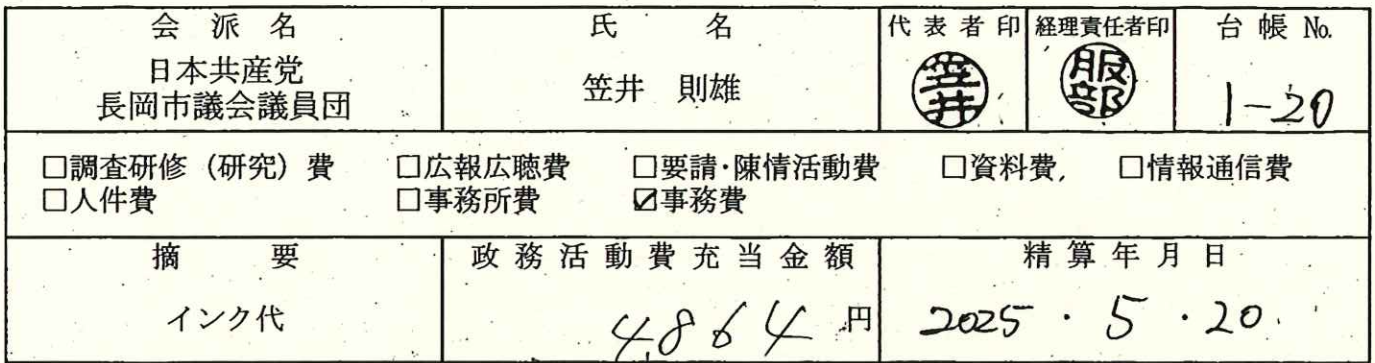 会派名 氏名 代表者印 経理責任者印 台帳No.
日本共産党
長岡市議会議員団 笠井 則雄 笠井 服部 1-20
□調査研修(研究)費 □広報広聴費 □要請・陳情活動費 □資料費 □情報通信費
□人件費 □事務所費 ☑事務費
摘要 政務活動費充当金額 精算年月日
インク代 4,864円 2025・5・20